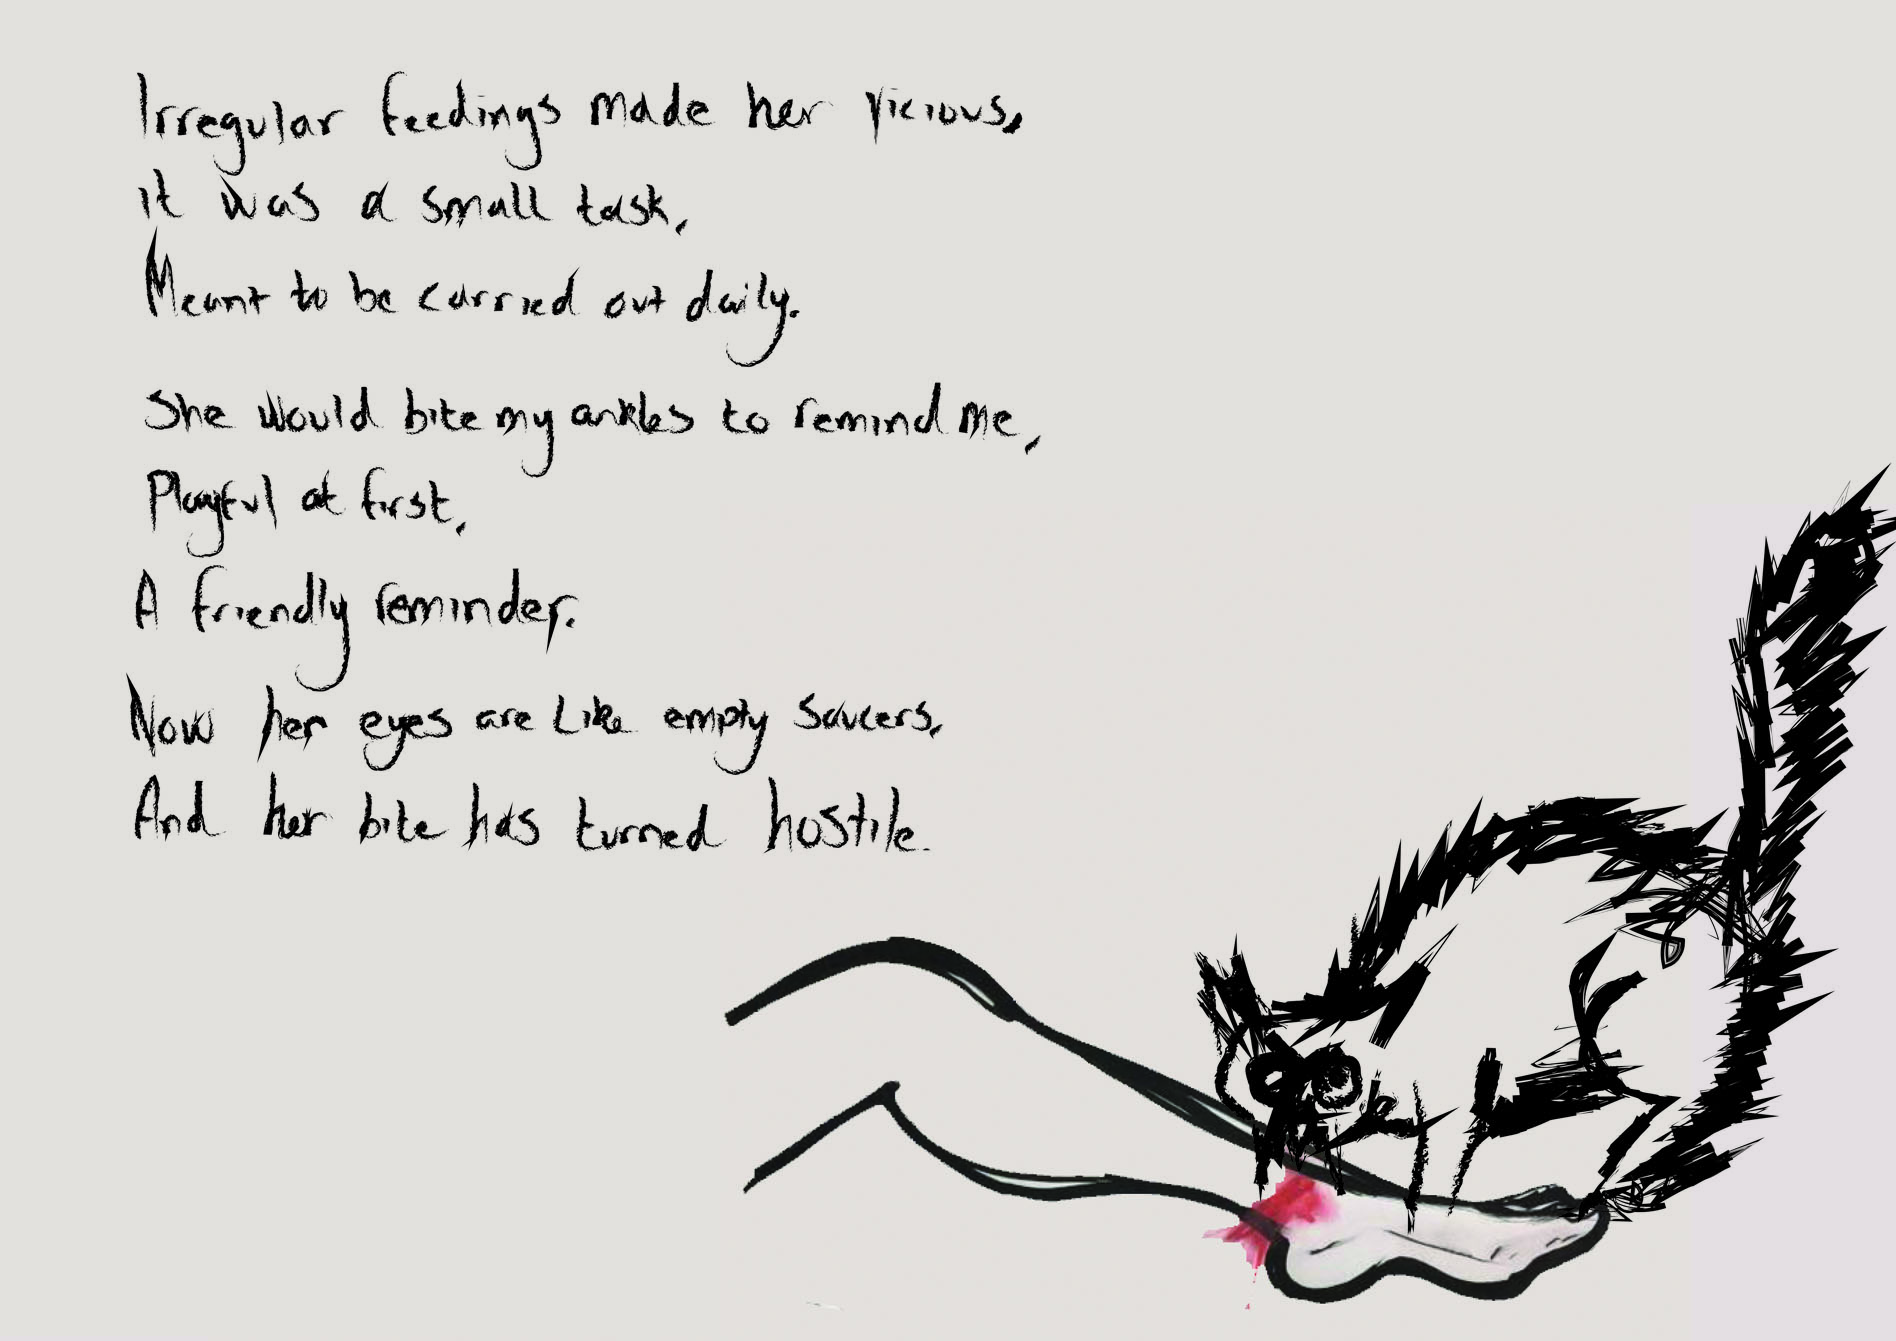 Irregular feedings made her vicious,
it was a small task,
Meant to be carried out daily.
She would bite my ankles to remind me,
Playful at first,
A friendly reminder.
Now her eyes are Like empty saucers,
And her bite has turned hostile.